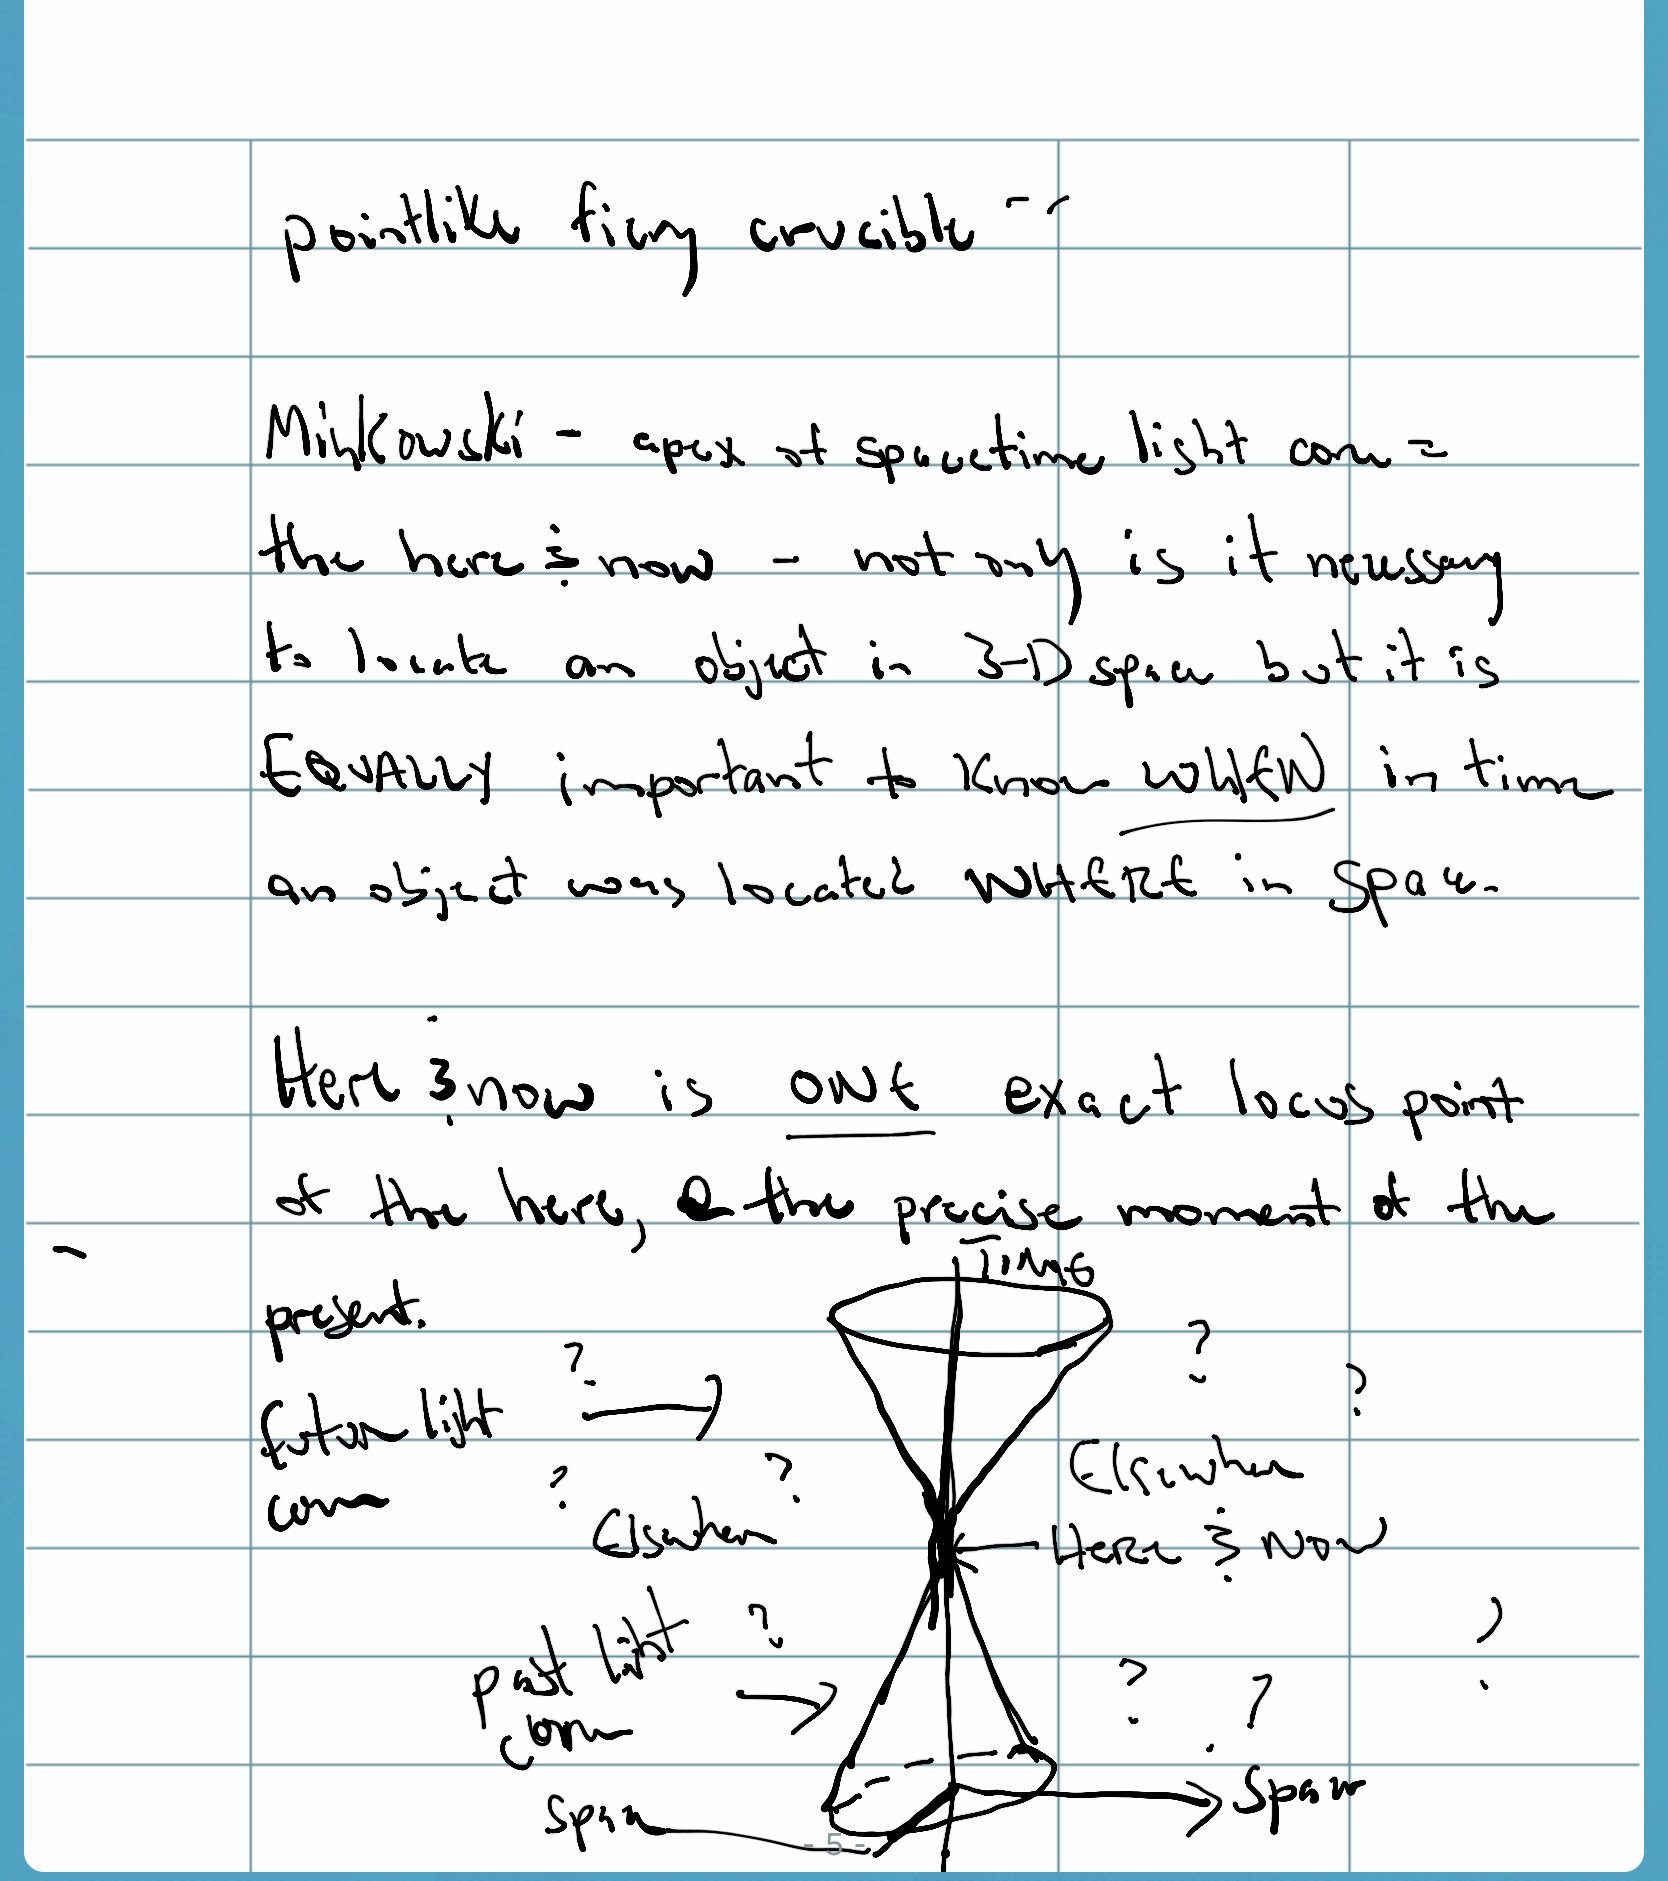 pointlike fiery crucible --
Minkowski - apex of spacetime light cone =
the here & now - not only is it necessary
to locate an object in 3-D space but it is
EQUALLY important to know WHEN in time
an object was located WHERE in space.
Here & now is ONE exact locus point
of the here, @ the precise moment of the
present.
TIME
?
?
?
future light
cone
?
?
Elsewhere
Elsewhere
Here & Now
past light
cone
?
?
?
?
Space
Space
- 5 -